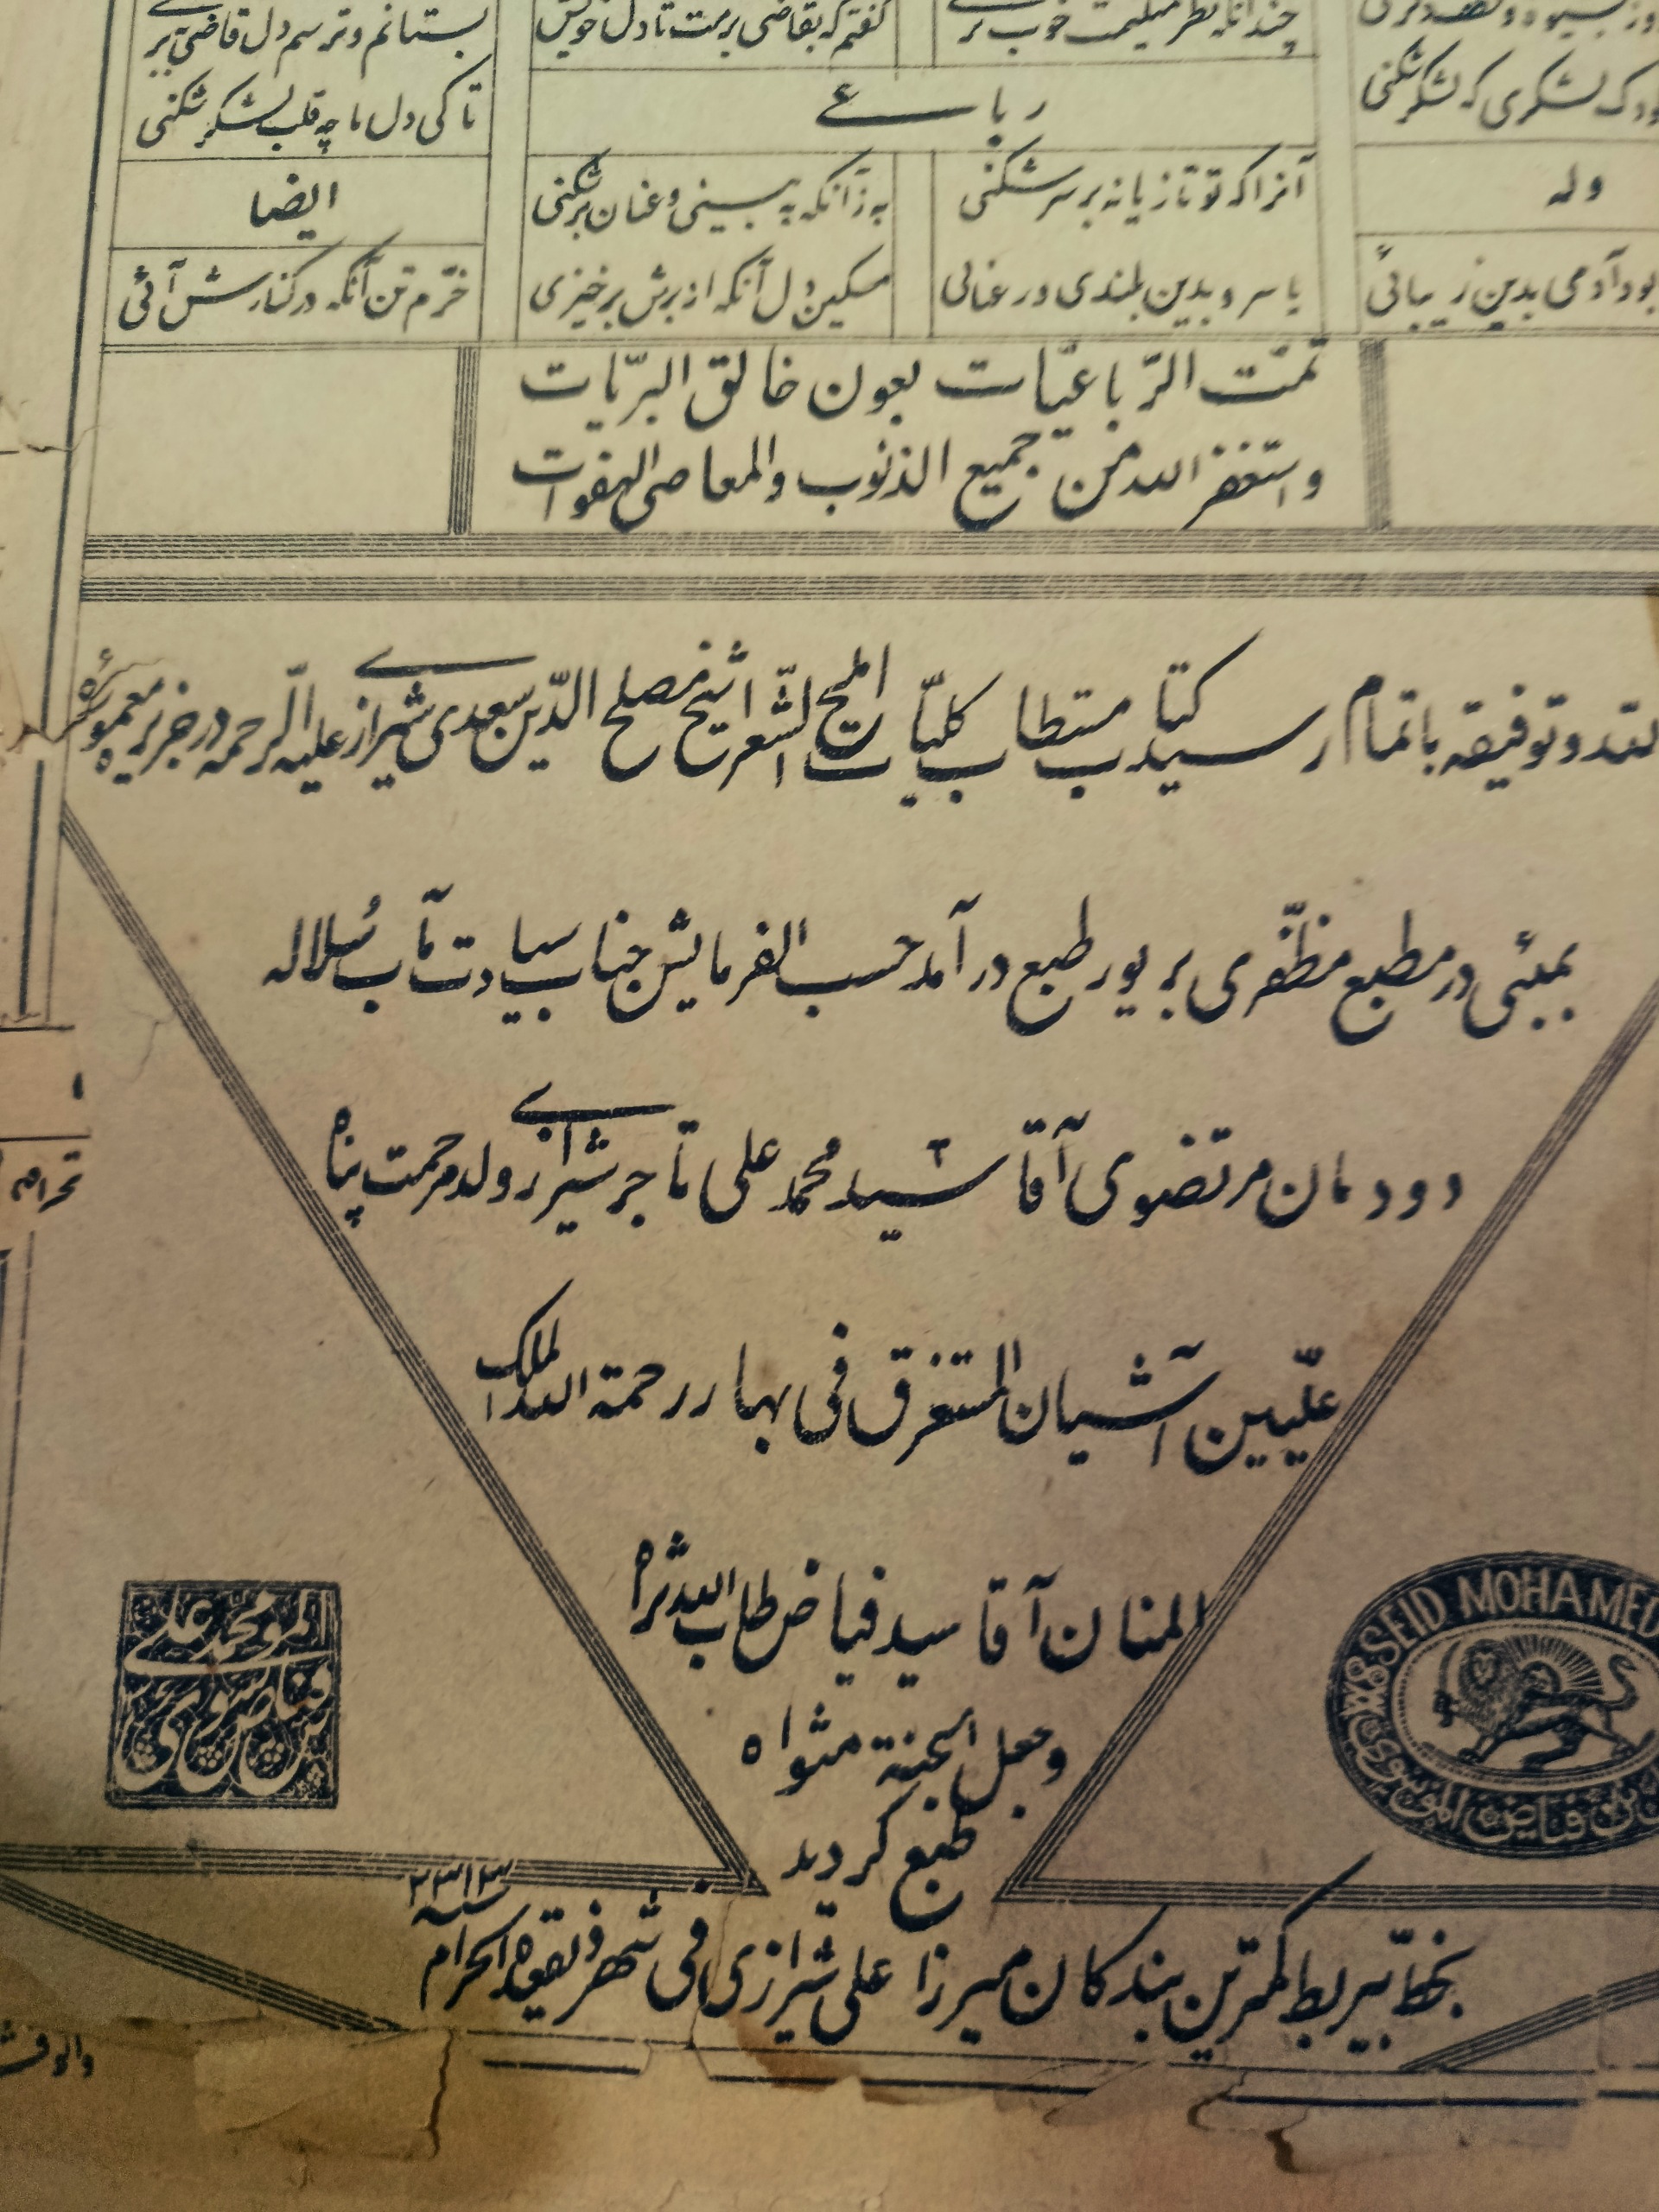 بستانم و ترسم دل قاضی بر
گفتم که بقاضی برمت تا دل خویش
چندانکه نظر میکنمت خوب تر
تا کی دل ما چه قلب لشکر شکنی
رباعے
کودک لشکری که لشکر شکنی
ایضا
به زانکه به بینی و عنان بر شکنی
آنرا که تو تازیانه بر سر شکنی
وله
خرّم تن آنکه در کنارش آئی
مسکین دل آنکه از برش برخیزی
یا سرو بدین بلندی و رعنائی
بود آدمی بدین زیبائی
تمّت الرّباعیّات بعون خالق البرّیات
و استغفر الله من جمیع الذنوب والمعاصی الهفوات
و توفیقه باتمام رسید کتاب مستطاب کلیّات املح الشّعرا شیخ مصلح الدّین سعدی شیرازے علیه الرّحمه در جزیره معموره
بمبئی در مطبع مظفّری بزیور طبع در آمد حسب الفرمایش جناب سیادت مآب سُلاله
دودمان مرتضوی آقا سید محمد علی تاجر شیرازے ولد مرحمت پناه
علّیین آشیان المستغرق فی بهار رحمة الله الملک
المنان آقا سید فیاض طاب الله ثراه
وجعل الجنة مثواه
طبع گردید
بخطّ بیربط کمترین بندگان میرزا علی شیرازی فی شهر ذیقعدة الحرام
SEID MOHAMED
تحرام